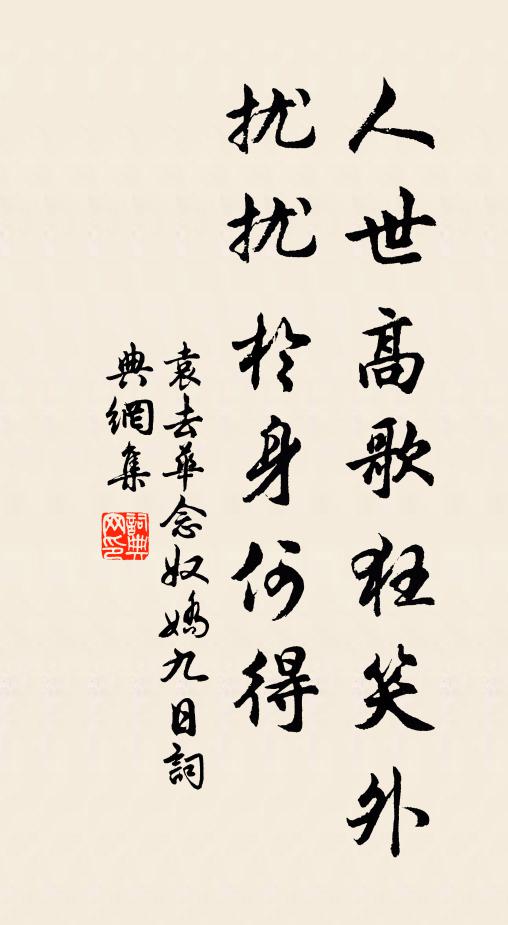 人世高歌狂笑外
扰扰於身何得
袁去華念奴嬌九日詞
典網集
詞典網印